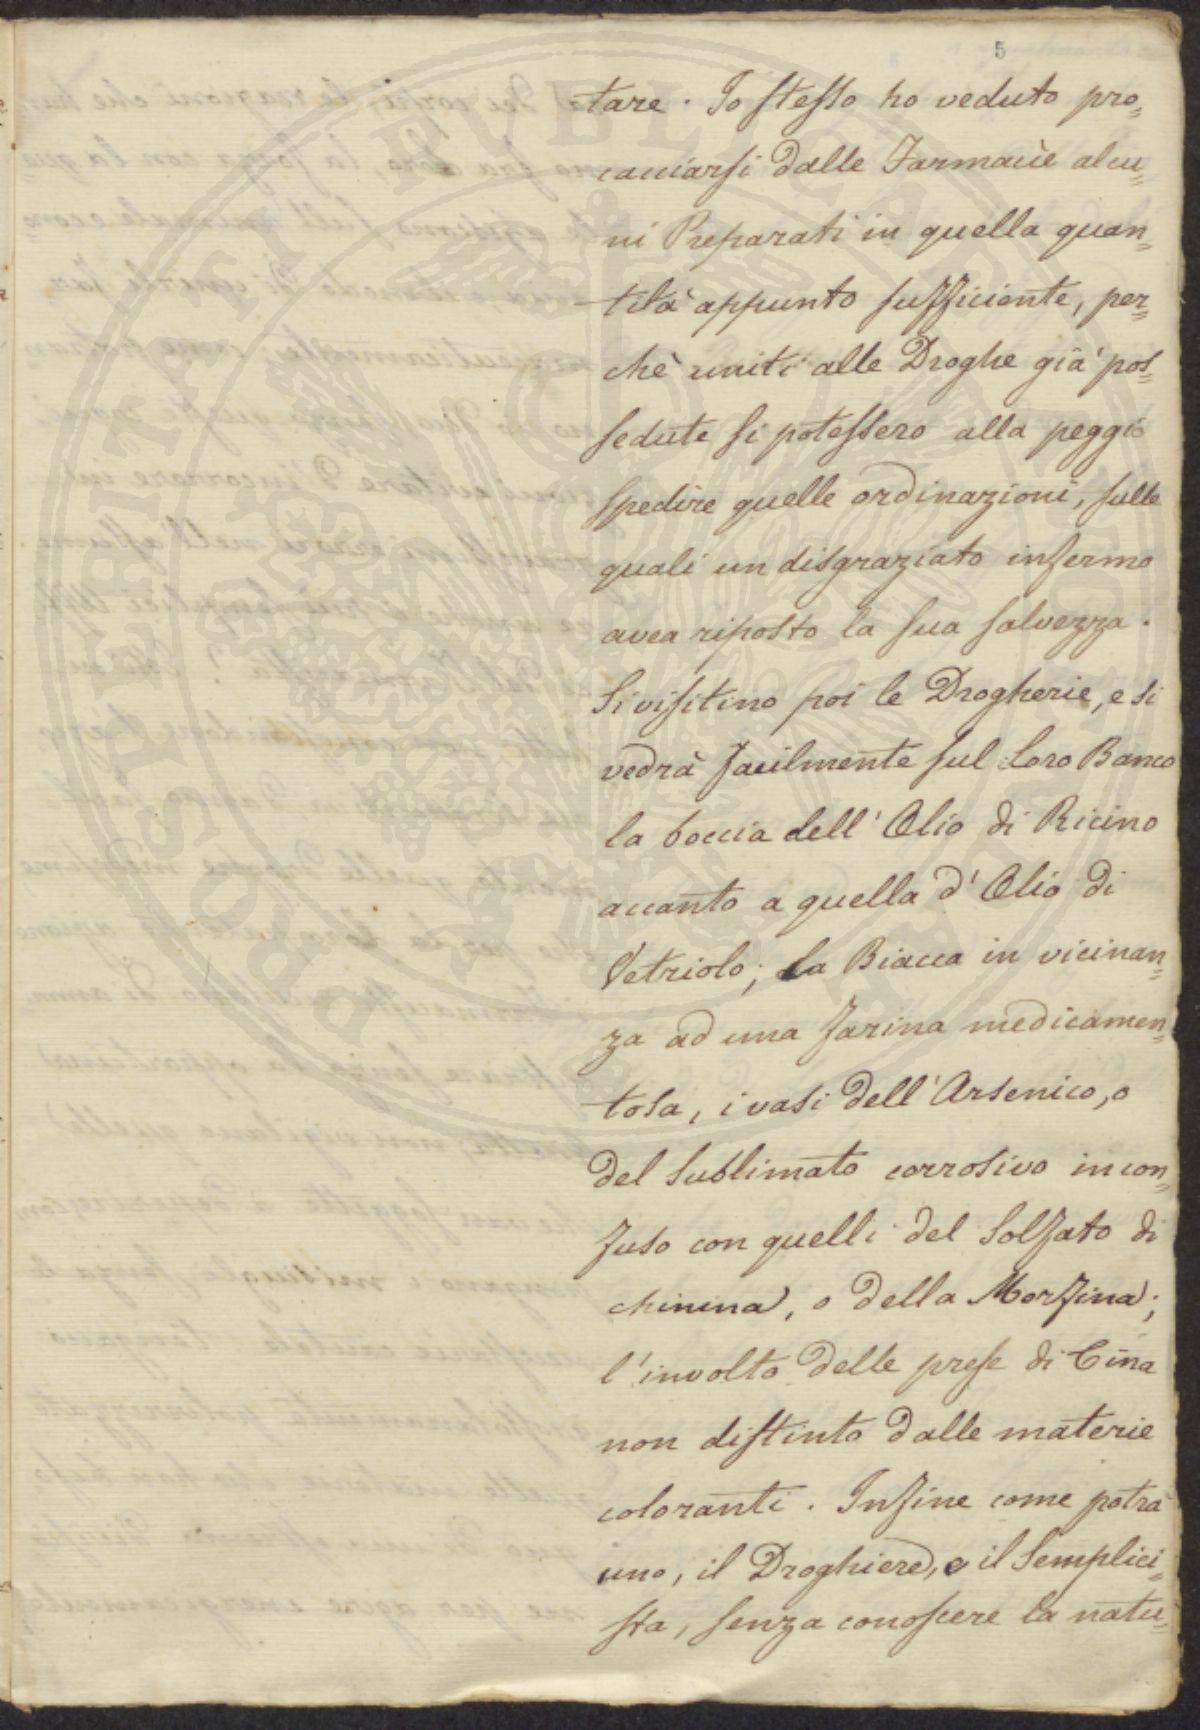 5
tare. Io stesso ho veduto pro=
cacciarsi dalle Farmacie alcu=
ni Preparati in quella quan=
tità appunto sufficiente, per=
chè uniti alle Droghe già pos=
sedute si potessero alla peggio
spedire quelle ordinazioni, sulle
quali un disgraziato infermo
avea riposto la sua salvezza.
Si visitino poi le Drogherie, e si
vedrà facilmente sul loro Banco
la boccia dell'Olio di Ricino
accanto a quella d'Olio di
Vetriolo; la Biacca in vicinan=
za ad una farina medicamen=
tosa, i vasi dell'Arsenico, o
del sublimato corrosivo in con=
fuso con quelli del Solfato di
chinina, o della Morfina;
l'involto delle prese di Cina
non distinto dalle materie
coloranti. Infine come potrà
uno, il Droghiere, o il Semplici=
sta, senza conoscere la natu=